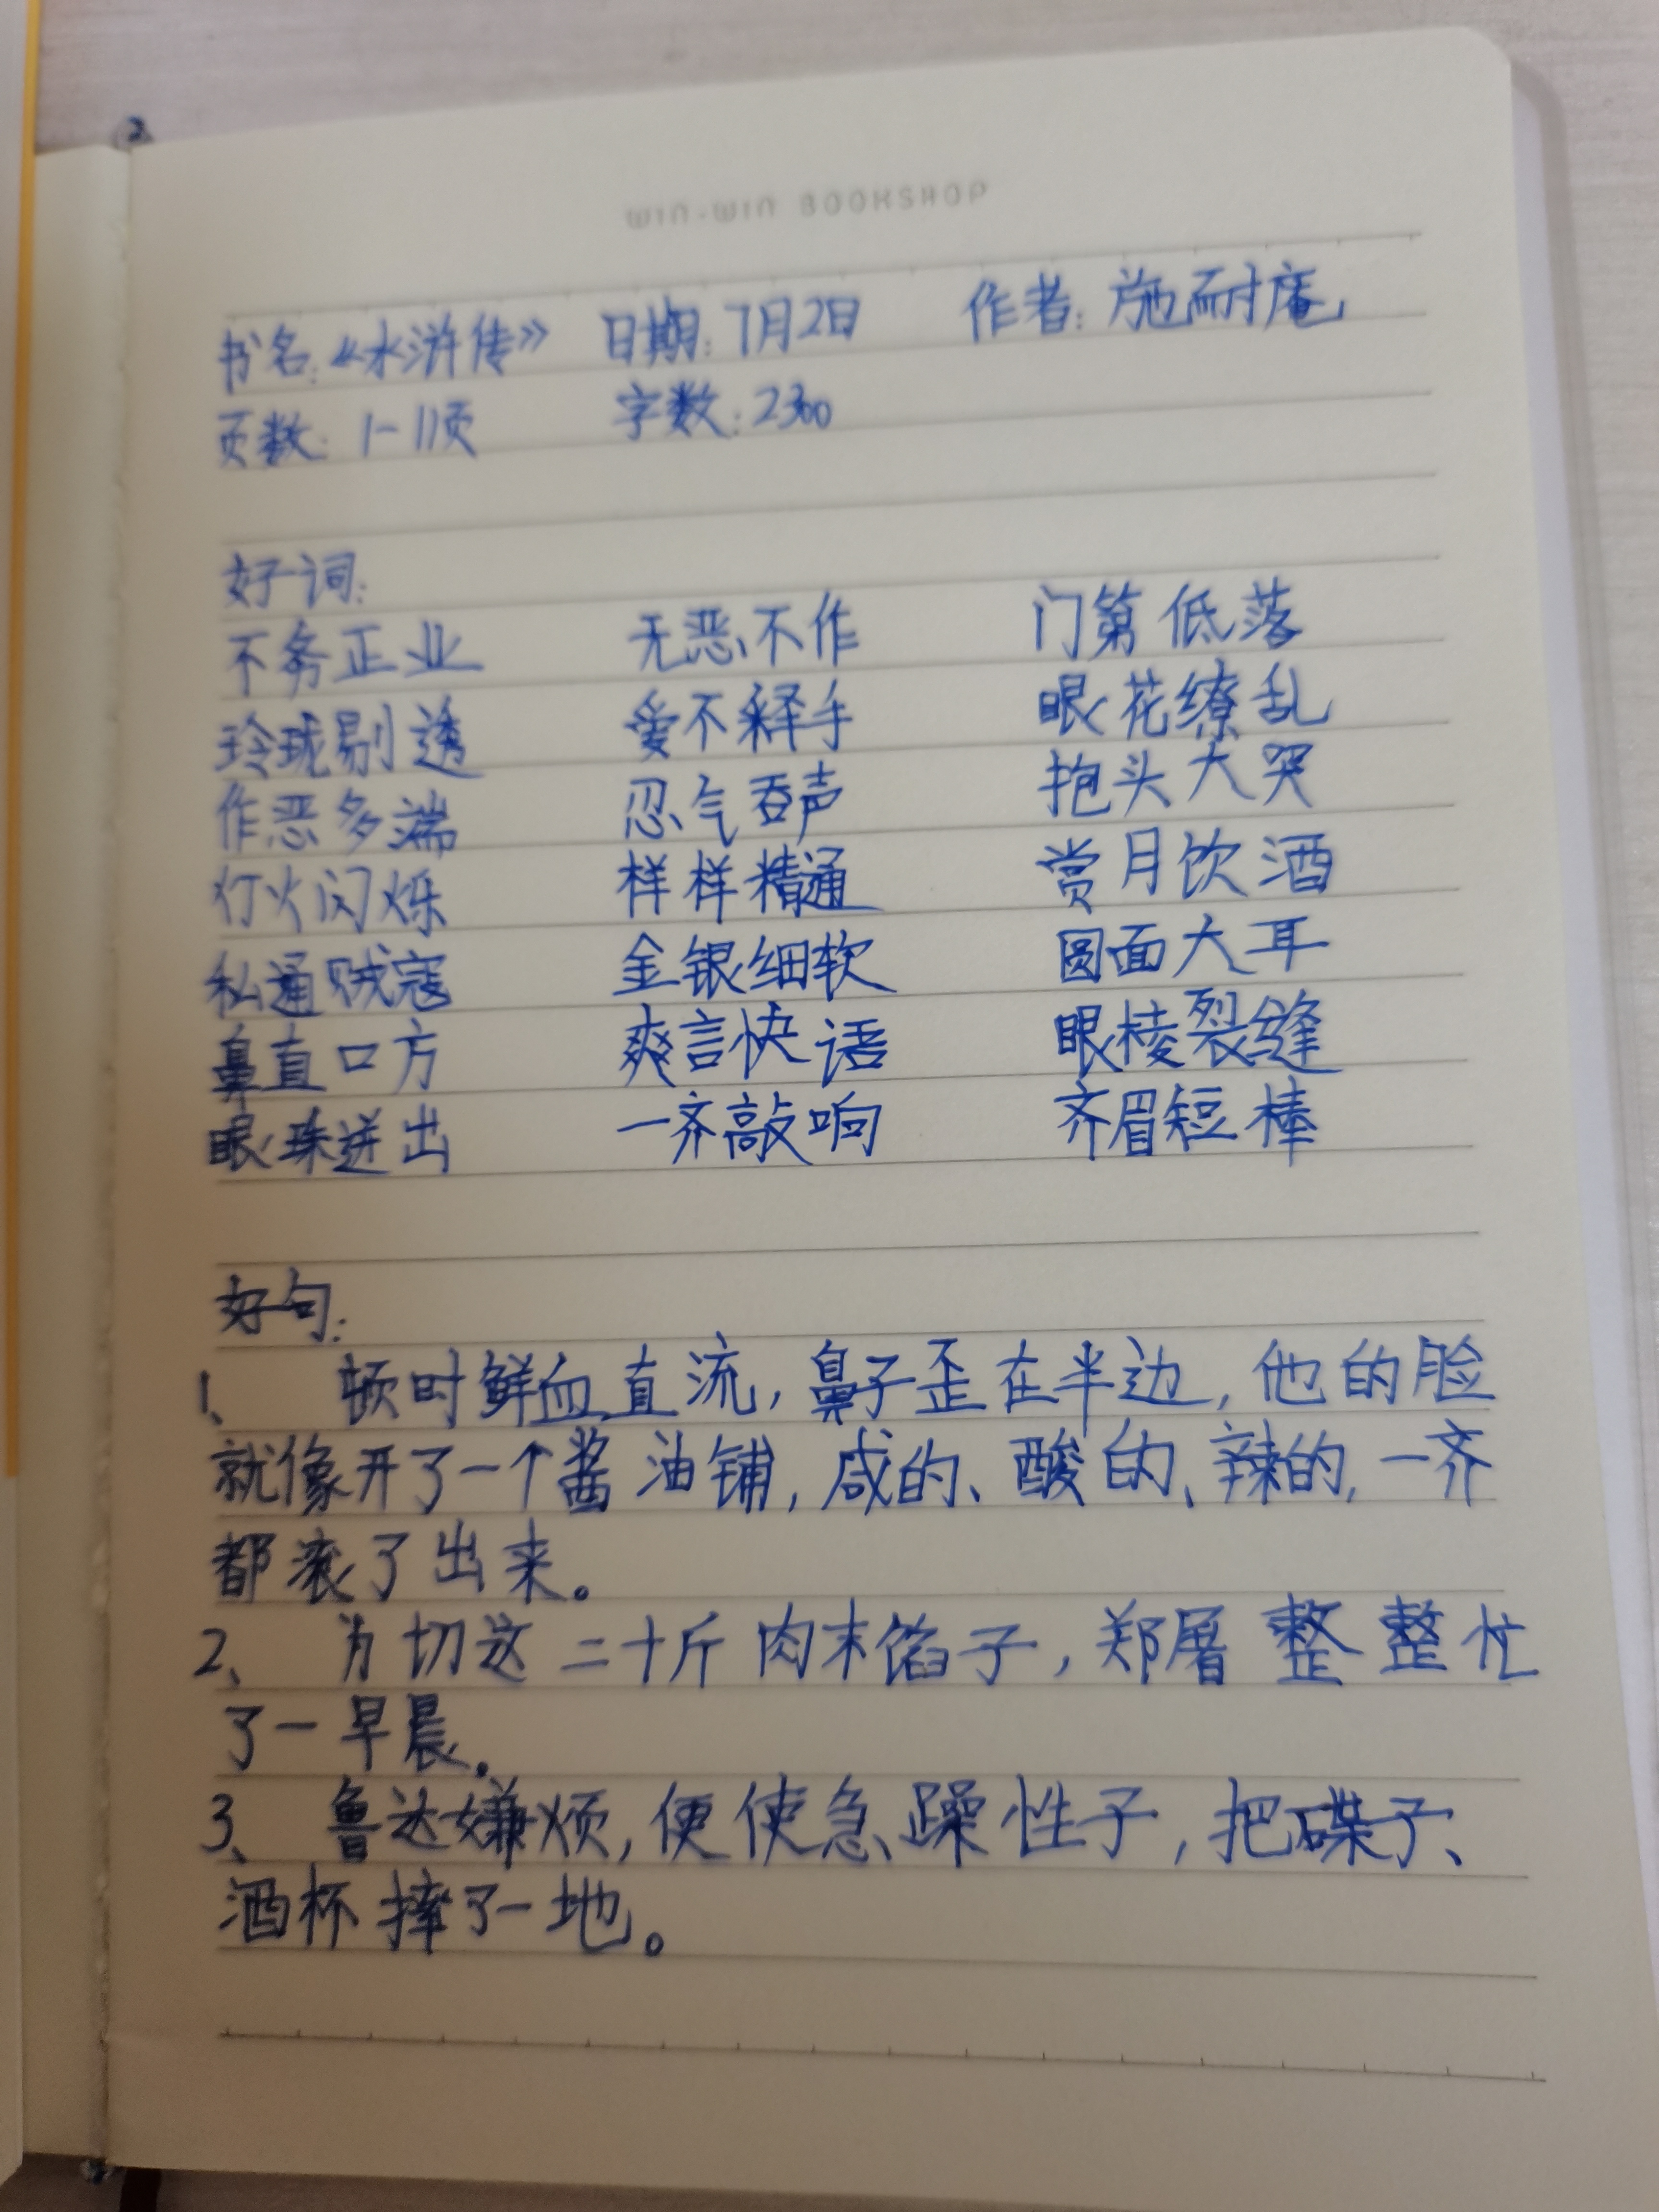 WIN-WIN BOOKSHOP
书名:《水浒传》 日期:7月2日 作者:施耐庵
页数:1-11页 字数:2300
好词:
不务正业 无恶不作 门第低落
玲珑剔透 爱不释手 眼花缭乱
作恶多端 忍气吞声 抱头大哭
灯火闪烁 样样精通 赏月饮酒
私通贼寇 金银细软 圆面大耳
鼻直口方 爽言快语 眼棱裂缝
眼珠迸出 一齐敲响 齐眉短棒
好句:
1、 顿时鲜血直流,鼻子歪在半边,他的脸
就像开了一个酱油铺,咸的、酸的、辣的,一齐
都滚了出来。
2、 为切这二十斤肉末馅子,郑屠整整忙
了一早晨。
3、 鲁达嫌烦,便使急躁性子,把碟子、
酒杯摔了一地。